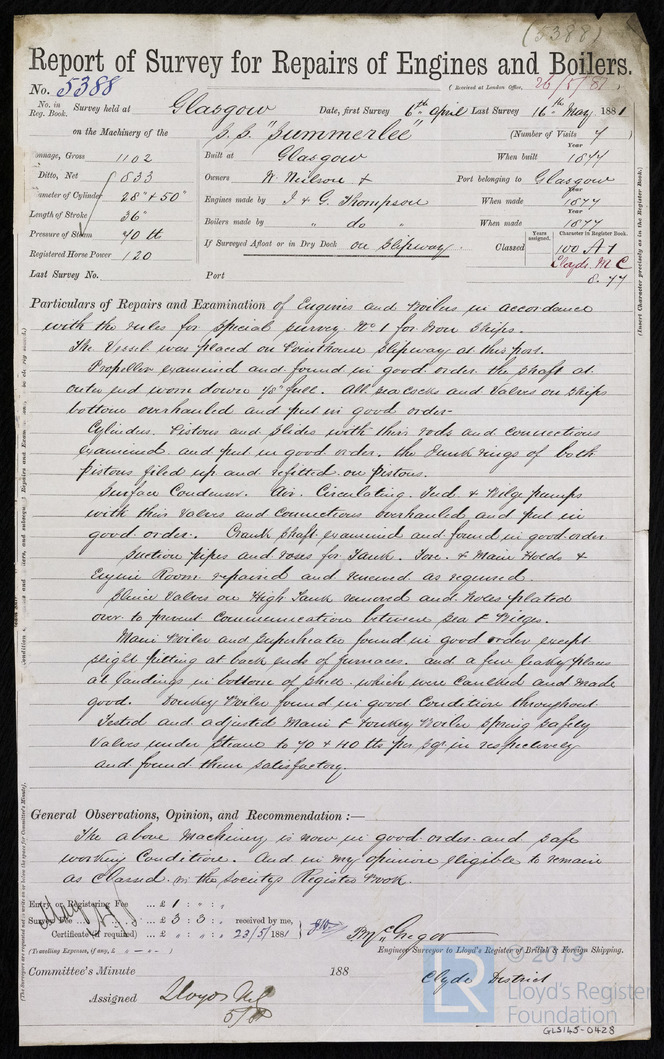 (5388)
Report of Survey for Repairs of Engines and Boilers.
No. 5388 (Received at London Office, 26/5/81)
No. in Reg. Book. Survey held at Glasgow Date, first Survey 6th April Last Survey 16th May 1881
on the Machinery of the S.S. "Summerlee" (Number of Visits 7)
Tonnage, Gross 1102 Built at Glasgow When built Year 1877
Ditto, Net 833 Owners W. Neilson & Port belonging to Glasgow
Diameter of Cylinder 28" + 50" Engines made by J. & G. Thompson When made Year 1877
Length of Stroke 36" Boilers made by " do " When made Year 1877
Pressure of Steam 70 lb If Surveyed Afloat or in Dry Dock on Slipway. Classed Years assigned. Character in Register Book. 100 A1
Registered Horse Power 120 Lloyds M C
8. 77
Last Survey No. Port
(Insert Character precisely as in the Register Book.)
Particulars of Repairs and Examination of Engines and Boilers in accordance
with the rules for Special Survey No 1 for Iron Ships.
The Vessel was placed on Pointhouse Slipway at this port.
Propeller examined and found in good order the Shaft at
outer end worn down 1/8" full. All sea cocks and Valves on Ships
bottom overhauled and put in good order-
Cylinders. Pistons and Slides with their rods and connections
examined and put in good order. the Junk rings of both
pistons filed up and refitted on pistons.
Surface Condenser. Air. Circulating. Feed. & Bilge pumps
with their Valves and Connections overhauled and put in
good order. Crank Shaft examined and found in good order
Suction pipes and roses for Tank. Fore. & Main Holds &
Engine Room repaired and renewed as required.
Sluice Valves on High Tank removed and Holes plated
over to prevent Communication between Sea & Bilges.
Main Boiler and Superheater found in good order except
slight pitting at back ends of furnaces. and a few leaky places
at landings in bottom of Shell. which were Caulked and made
good. Donkey Boiler found in good Condition throughout
Tested and adjusted Main & Donkey Boiler Spring Safety
Valves under Steam to 70 & 40 lbs per sqr in respectively
and found them satisfactory.
General Observations, Opinion, and Recommendation:—
The above Machinery is now in good order and safe
working Condition. And in my opinion eligible to remain
as Classed in the Societys Register Book.
Entry or Registering Fee ... £ 1 : " : "
Survey Fee ... £ 3 : 3 : " received by me,
Certificate (if required) ... £ " : " : " 23/5/1881
(Travelling Expenses, if any, £ " — " — " )
P McGregor
Engineer Surveyor to Lloyd's Register of British & Foreign Shipping.
Clyde District
Committee's Minute 188
Assigned Lloyds MC
5/81
© 2019
LR
Lloyd's Register
Foundation
GLS145-0428